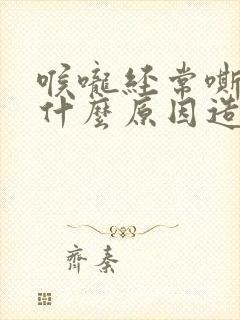 喉嚨經常嘶
什麼原因造
齊秦